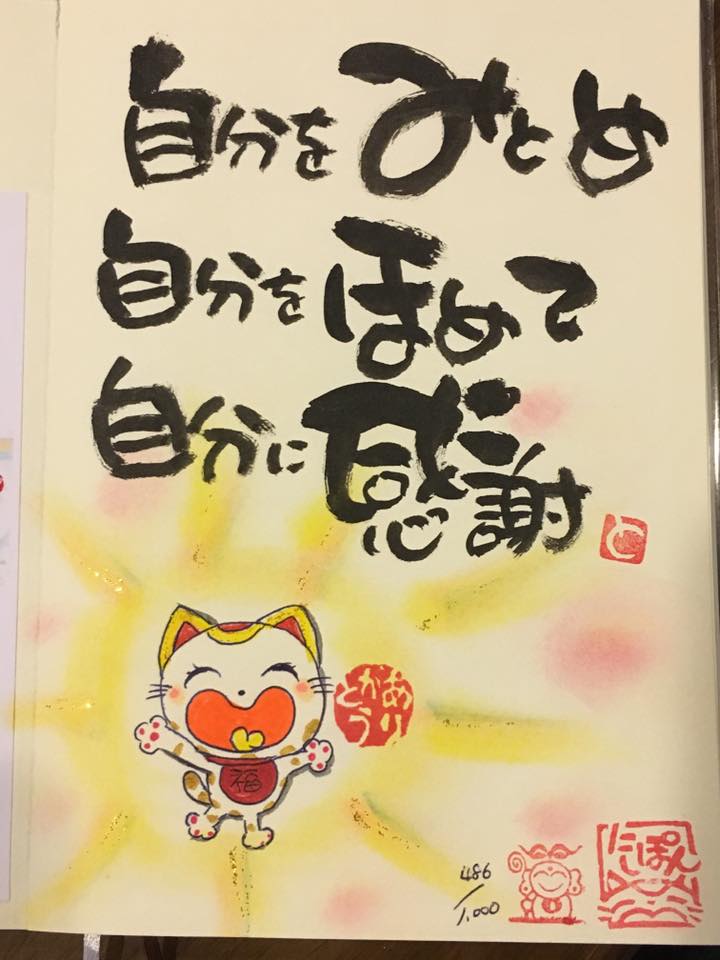 自分をみとめ
自分をほめて
自分に感謝
と
ありがとう
福
486/1,000
にっぽん